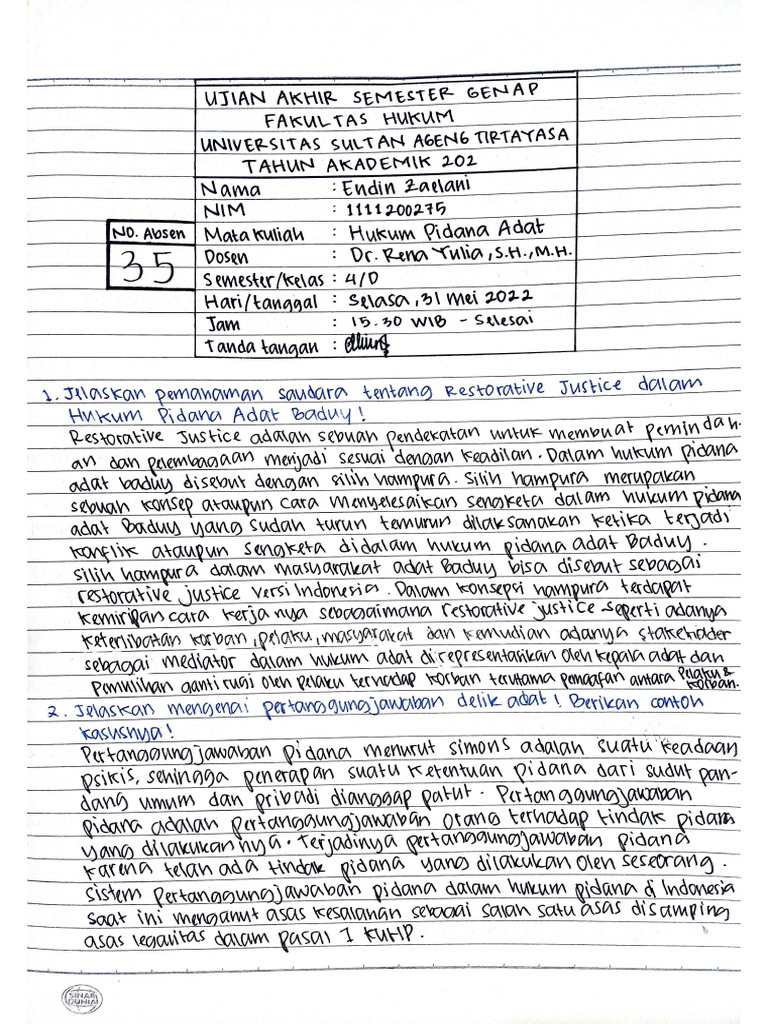 UJIAN AKHIR SEMESTER GENAP
FAKULTAS HUKUM
UNIVERSITAS SULTAN AGENG TIRTAYASA
TAHUN AKADEMIK 202
Nama : Endin Zaelani
NIM : 1111200275
No. Absen
35
Mata kuliah : Hukum Pidana Adat
Dosen : Dr. Rena Yulia, S.H., M.H.
Semester/kelas : 4/D
Hari/tanggal : Selasa, 31 Mei 2022
Jam : 15.30 WIB - Selesai
Tanda tangan :
1. Jelaskan pemahaman saudara tentang Restorative Justice dalam
Hukum Pidana Adat Baduy!
Restorative Justice adalah sebuah pendekatan untuk membuat pemindah-
an dan pelembagaan menjadi sesuai dengan keadilan. Dalam hukum pidana
adat baduy disebut dengan silih hampura. Silih hampura merupakan
sebuah konsep ataupun cara menyelesaikan sengketa dalam hukum pidana
adat Baduy yang sudah turun temurun dilaksanakan ketika terjadi
konflik ataupun sengketa didalam hukum pidana adat Baduy.
Silih hampura dalam masyarakat adat Baduy bisa disebut sebagai
restorative justice versi Indonesia. Dalam konsepsi hampura terdapat
kemiripan cara kerja nya sebagaimana restorative justice seperti adanya
keterlibatan korban, pelaku, masyarakat dan kemudian adanya stakeholder
sebagai mediator dalam hukum adat di representasikan oleh kepala adat dan
Pemulihan ganti rugi oleh pelaku terhadap korban terutama pemaafan antara Pelaku &
korban.
2. Jelaskan mengenai pertanggungjawaban delik adat! Berikan contoh
kasusnya!
Pertanggungjawaban pidana menurut simons adalah suatu keadaan
psikis, sehingga penerapan suatu ketentuan pidana dari sudut pan-
dang umum dan pribadi dianggap patut. Pertanggungjawaban
pidana adalah pertanggungjawaban orang terhadap tindak pidana
yang dilakukannya. Terjadinya pertanggungjawaban pidana
karena telah ada tindak pidana yang dilakukan oleh seseorang.
Sistem pertanggungjawaban pidana dalam hukum pidana di Indonesia
saat ini menganut asas kesalahan sebagai salah satu asas disamping
asas legalitas dalam pasal 1 KUHP.
SINAR
DUNIA